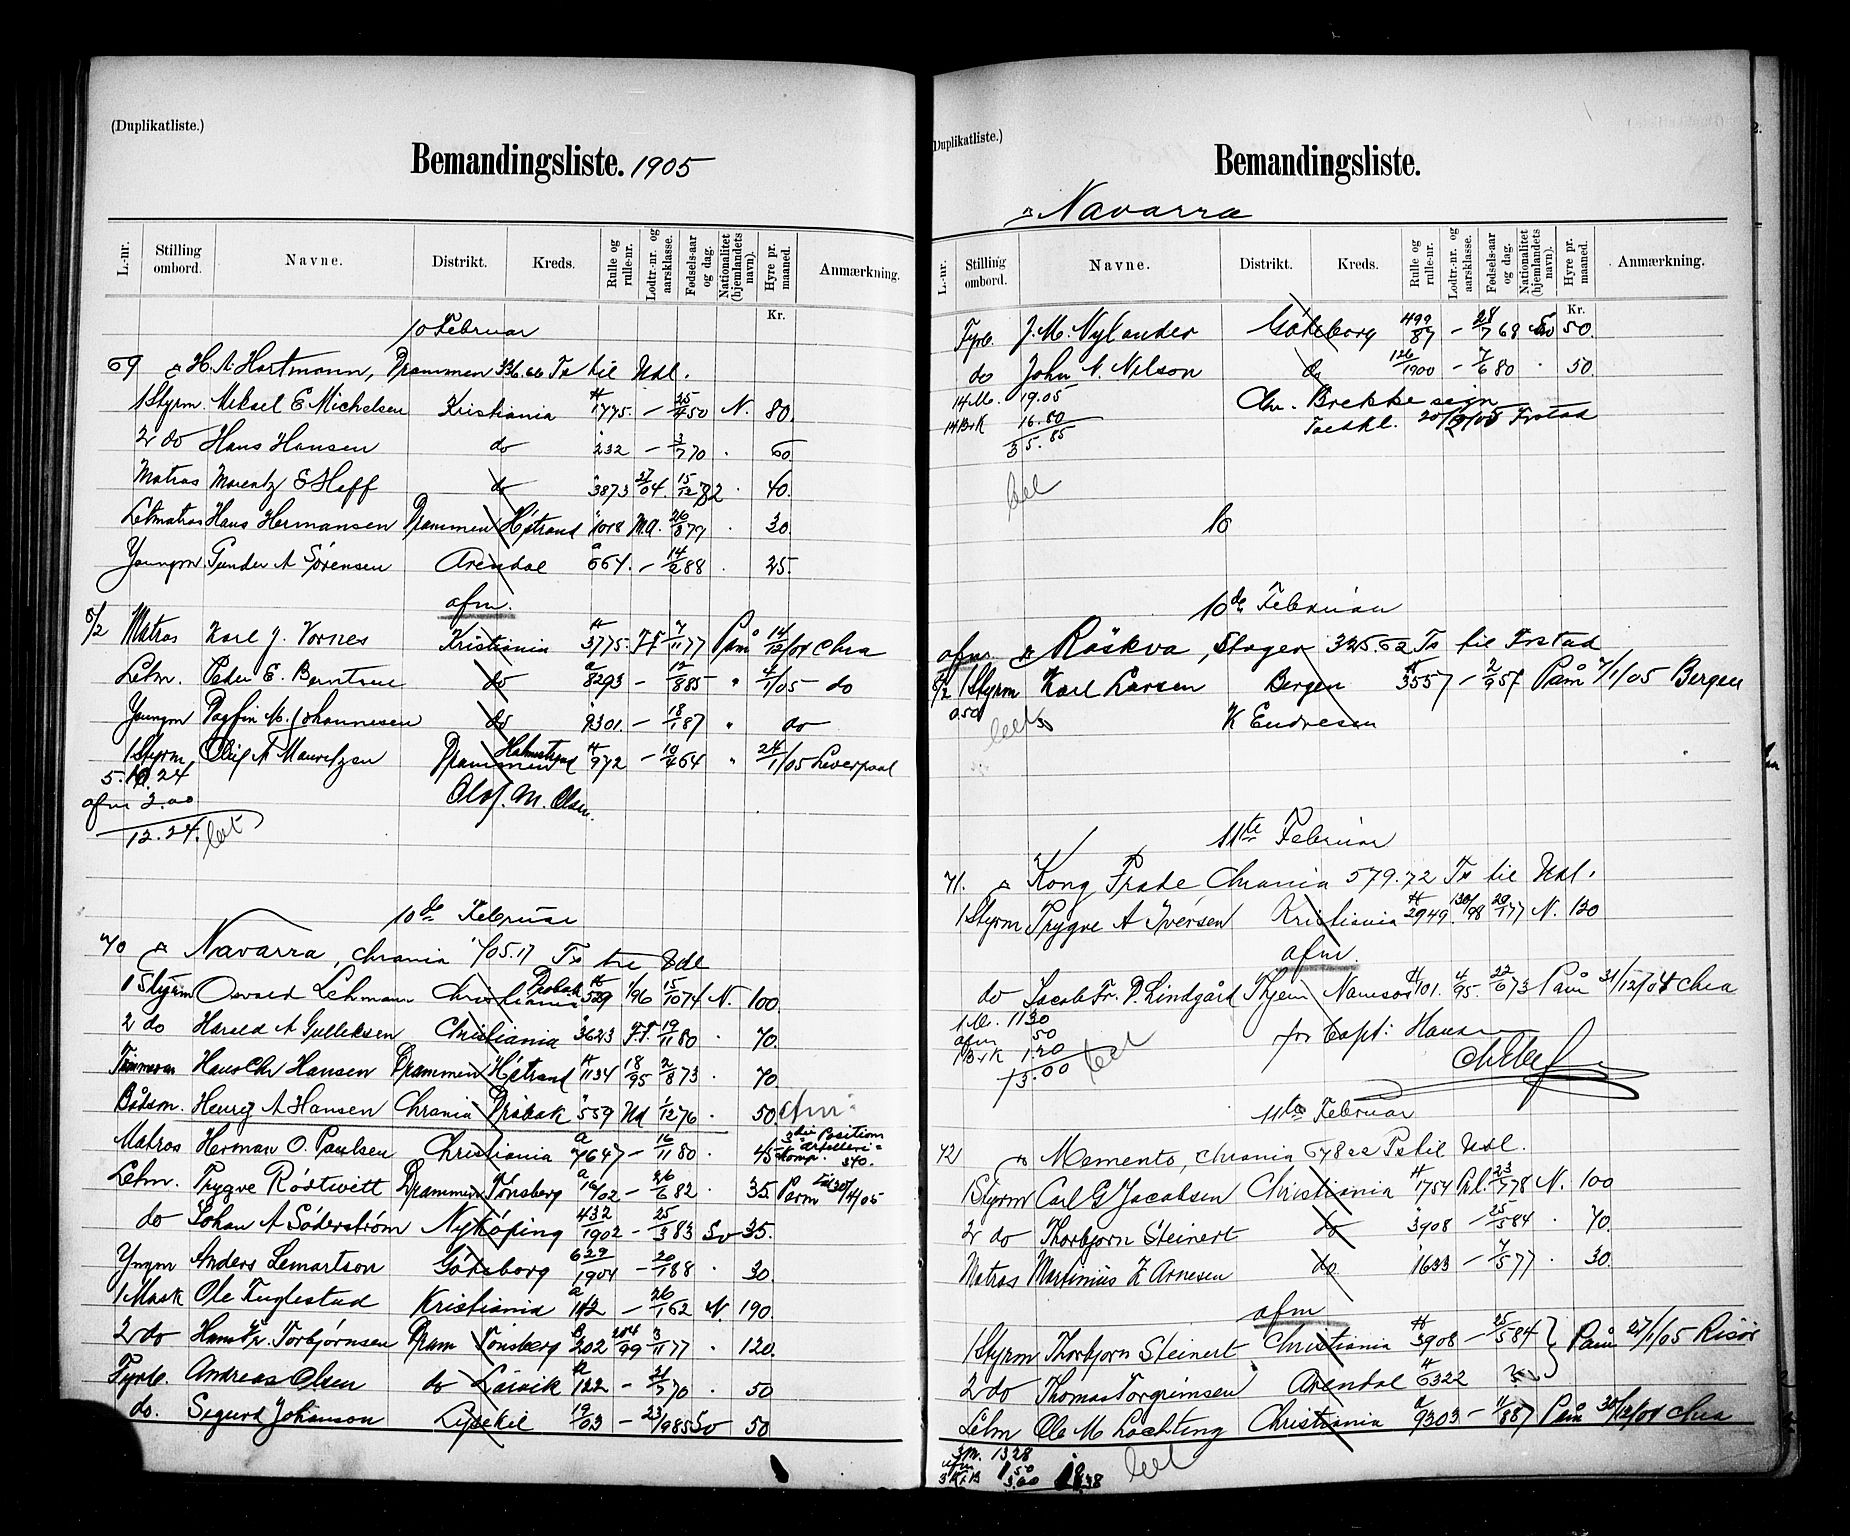 (Duplikatliste.)
Bemandingsliste. 1905
L.-nr. Stilling ombord. Navne. Distrikt. Kreds. Rulle og rulle-nr. Lodtr.-nr. og aarsklasse. Fødsels-aar og dag. Nationalitet (hjemlandets navn). Hyre pr. maaned. Anmærkning.
Kr.
10 Februar
69 H. A. Hartmann, Drammen 336.66 Ts til Udl.
1 Styrm. Mikael E Michelsen Kristiania 1775. — 25/4 50 N. 80.
2 do Hans Hansen do 232 — 3/7 70 . 60
Matros Morentz E Hoff do 3873 37/04. 15/12 82 . 40.
Letmatros Hans Hermansen Drammen Hstrand 1018 26/3 79 . 30.
Youngm Gunder A Sørensen Arendal 664. — 14/2 88 . 25.
afm.
6/2 Matros Karl J. Vornes Kristiania 3775. F.F. 7/11 77 Paam 14/12/04 Chra
Letm. Peder E. Berntsen do 8293 — 12/8 85 " 4/1/05 do
Youngm Dagfin M. Johannesen do 9301. — 18/1 87 " do
1 Styrm. A Mauritzen Drammen Holmestrand 972 — 10/4 64 " 24/1/05 Liverpool
5. 10.24
afm 2.00
Olaf. M. Olsen.
12.24. bet
10de Februar
70 Navarra, Chrania 705.17 Ts til Udl
1 Styrm Osvald Lehmann Christiania Drøbak 529 1/96 15/10 74 N. 100.
2 do Harald A Gulliksen Christiania 3623 F.F. 19/11 80 . 70.
Tømmerm Hans Chr Hansen Drammen Hstrand 1134 18/95 2/8 73 . 70
Bådsm. Henrij A Hansen Chrania Drøbak 559 Ud 1/12 76 . 50 afm.
Matros Herman O. Paulsen Christiania 7647 — 16/11 80 . 45 3die Positions Artilleri Komp. 340.
Letm. Trygve Rödtwitt Drammen Tønsberg 16/02 — 26/6 82 . 35. Perm til 30/4/05
do Johan A Söderström Nyköping 432/1902 — 25/3 83 Sv 35.
Yngm Anders Lemartson Göteborg 629/1904 — 20/1 88 . 30.
1 Mask Ole Fuglestad Kristiania 112 — 26/1 62 N. 190.
2 do Hans Fr. Torbjörnsen Dram Tönsberg 202 204/99 3/11 77 . 120.
Fyrb. Andreas Olsen do Larvik 122 — 21/7 70 . 50
do. Sigurd Johanson Lysekil 19/03 — 23/9 85 Sv 50
(Duplikatliste.)
Bemandingsliste.
Navarra
L.-nr. Stilling ombord. Navne. Distrikt. Kreds. Rulle og rulle-nr. Lodtr.-nr. og aarsklasse. Fødsels-aar og dag. Nationalitet (hjemlandets navn). Hyre pr. maaned. Anmærkning.
Kr.
Fyrb. J. M. Nylander Göteborg 499/87 — 28/7 68 Sv 50.
do John A. Nilson do 126/1900 — 7/6 80 . 50.
14 M. 19.05
Chr. Brekke sign
14 B & K 16.80
20/2/05 Frstad
35.85
bet
10de Februar
afm. Röskva, Skagen 325.62 Ts til Frstad
8/2 1 Styrm Karl Larsen Bergen 3557 — 2/9 57 Paam 7/1/05 Bergen
0.50
bet
K Endresen
11te Februar
71. Kong Frode Chrania 579.72 Ts til Udl.
1 Styrm Trygve A Iversen Kristiania 2949 130/98 29/1 77 N. 130
afm.
do Jacob Fr. P. Lindgård Thjem Namsos 101. 4/95. 22/6 73 Paam 31/12/04 Chra
1 M. 11 30
afm 50
for Capt: Hansen
1 B & K 1.20
bet
13.00
11te Februar
72 Memento, Chrania 678 22 Ts til Udl.
1 Styrm Carl G Jacobsen Christiania 1754 23/7 78 N. 100
2 do Thorbjorn Steinert do 3908 — 25/5 84 . 70.
Matros Martinius Z Arnesen do 1633 — 7/5 77 . 30.
afm
1 Styrm Thorbjorn Steinert Christiania 3908 — 25/5 84 Paam 27/1/05 Risör
2 do Thomas Torgrimsen Arendal 6322
Letm Ole M Lochting Christiania 9303 — 11/8 87 Paam 30/12/04 Chra
3 M. 13 28
afm 1 50
3 K & B 3.60 18.38
bet